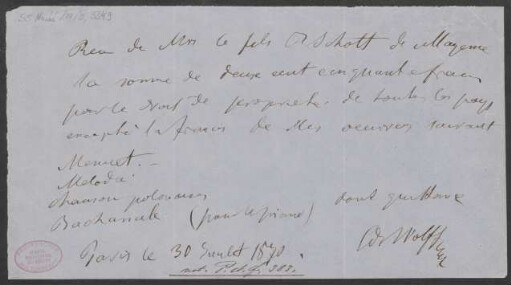 Recu de Mrs les fils B Schott de Mayence
la somme de deux cent cinquante francs
pour le droit de propriété de toutes les pays
excepté la france de Mes oeuvres suivant
Menuet. -
Melodie
chanson polonaise
Bachanale (pour le piano) dont quittance
Paris le 30 Juillet 1870.
Ed Wolff